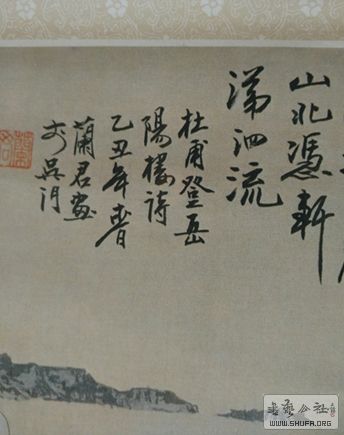 山北憑軒
涕泗流
杜甫登岳
陽樓詩
乙丑年春
蘭君畫
於吳门
书艺公社
WWW.SHUFA.ORG